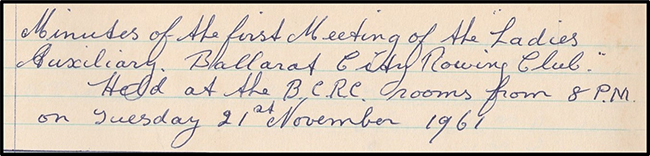 Minutes of the first Meeting of the "Ladies
Auxiliary, Ballarat City Rowing Club."
Held at the B.C.R.C. rooms from 8 P.M.
on Tuesday 21st November 1961